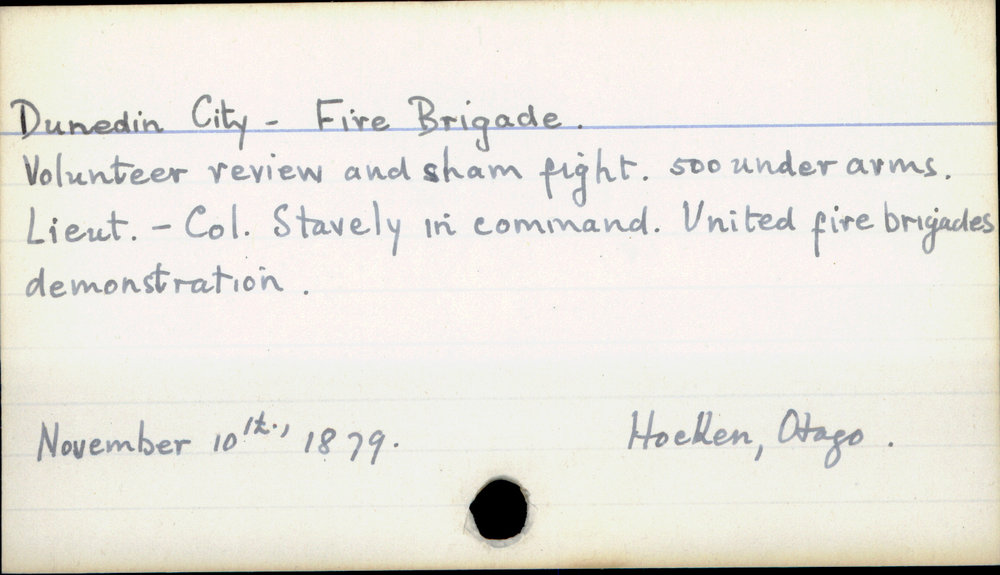 Dunedin City - Fire Brigade.
Volunteer review and sham fight. 500 under arms.
Lieut. - Col. Stavely in command. United fire brigades
demonstration.
November 10th., 1879. Hocken, Otago.